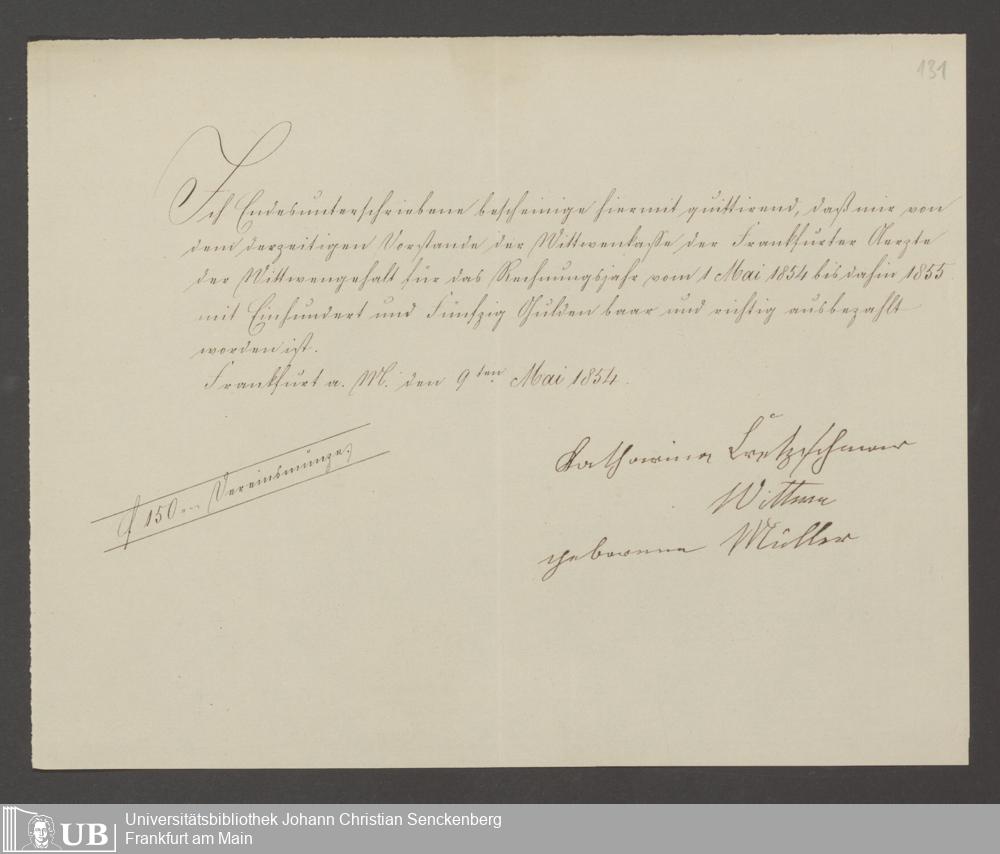 131
Ich Endesunterschriebene bescheinige hiermit quittirend, daß mir von
dem derzeitigen Vorstande der Wittwenkasse der Frankfurter Aerzte
der Wittwengehalt für das Rechnungsjahr vom 1 Mai 1854 bis dahin 1855
mit Einhundert und Fünfzig Gulden baar und richtig ausbezahlt
worden ist.
Frankfurt a. M. den 9ten Mai 1854.
Katharina Kretzschmar
Wittwe
geborene Müller
f 150.-- Vereinsmünze.
Universitätsbibliothek Johann Christian Senckenberg
Frankfurt am Main
UB